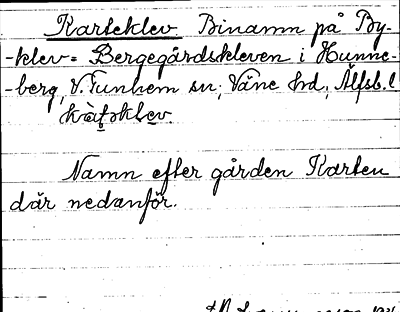 Karteklev Binamn på By-
-klev = Bergegårdskleven i Hunne-
-berg, V. Tunhem sn; Väne hd, Älfsb. l
Namn efter gården Karten
där nedanför.